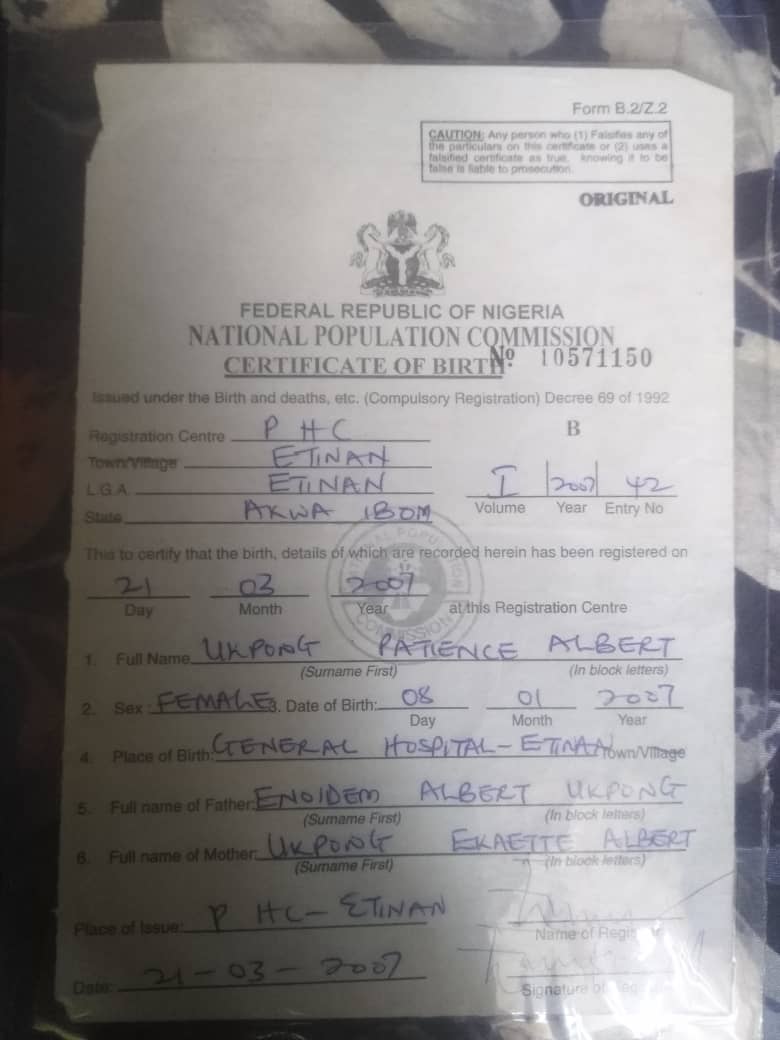 Form B.2/Z.2
CAUTION: Any person who (1) Falsifies any of
the particulars on this certificate or (2) uses a
falsified certificate as true, knowing it to be
false is liable to prosecution.
ORIGINAL
FEDERAL REPUBLIC OF NIGERIA
NATIONAL POPULATION COMMISSION
CERTIFICATE OF BIRTH
No. 10571150
Issued under the Birth and deaths, etc. (Compulsory Registration) Decree 69 of 1992
Registration Centre P H C B
Town/Village ETINAN
L.G.A. ETINAN I 2007 42
Volume Year Entry No
State AKWA IBOM
This to certify that the birth, details of which are recorded herein has been registered on
21 03 2007
Day Month Year at this Registration Centre
NATIONAL POPULATION COMMISSION
1. Full Name UKPONG PATIENCE ALBERT
(Surname First) (In block letters)
2. Sex: FEMALE 3. Date of Birth: 08 01 2007
Day Month Year
4. Place of Birth: GENERAL HOSPITAL - ETINAN Town/Village
5. Full name of Father: ENOIDEM ALBERT UKPONG
(Surname First) (In block letters)
6. Full name of Mother: UKPONG EKAETTE ALBERT
(Surname First) (In block letters)
Place of Issue: P HC - ETINAN
Name of
Date: 21 - 03 - 2007
Signature of